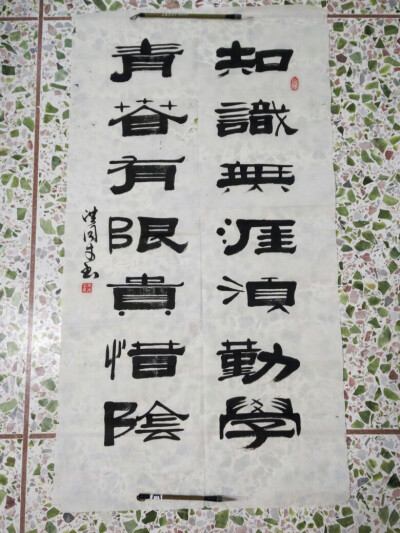 知識無涯湏勤學
青春有限貴惜陰